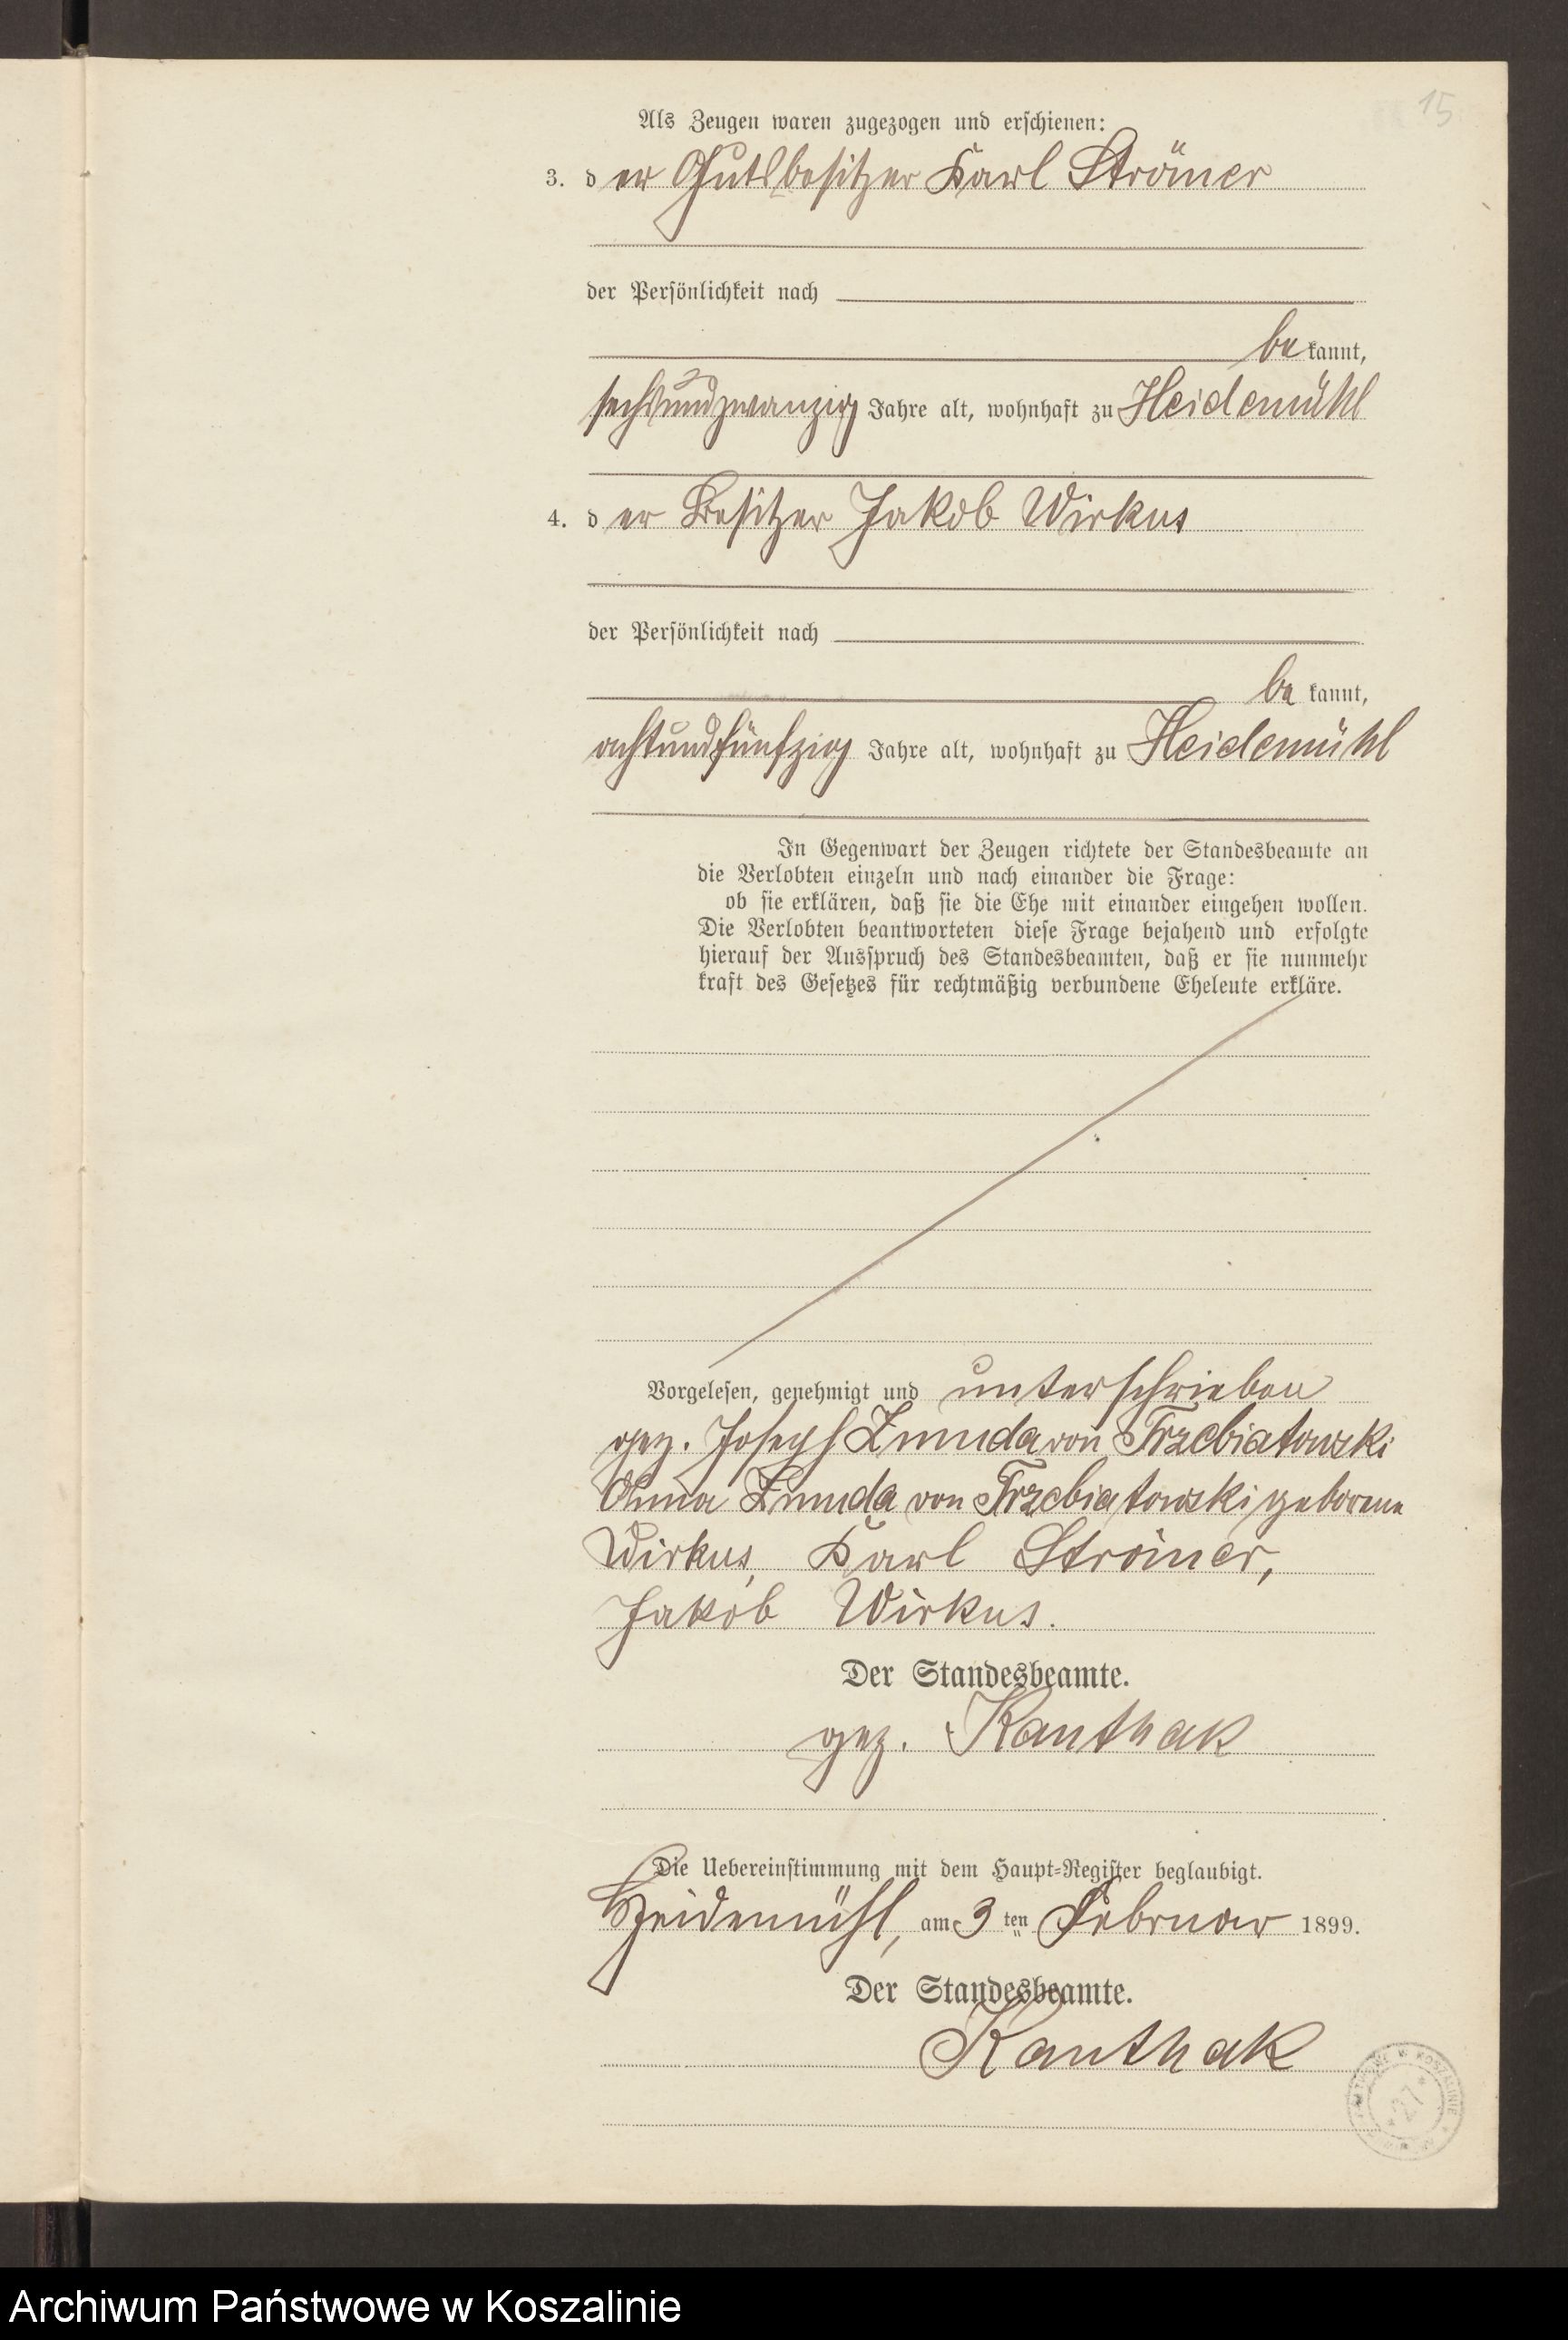 15
Als Zeugen waren zugezogen und erschienen:
3. der Gutsbesitzer Karl Strömer
der Persönlichkeit nach
bekannt,
sechsundzwanzig Jahre alt, wohnhaft zu Heidemühl
4. der Besitzer Jakob Wirkus
der Persönlichkeit nach
bekannt,
achtundfünfzig Jahre alt, wohnhaft zu Heidemühl
In Gegenwart der Zeugen richtete der Standesbeamte an
die Verlobten einzeln und nach einander die Frage:
ob sie erklären, daß sie die Ehe mit einander eingehen wollen.
Die Verlobten beantworteten diese Frage bejahend und erfolgte
hierauf der Ausspruch des Standesbeamten, daß er sie nunmehr
kraft des Gesetzes für rechtmäßig verbundene Eheleute erkläre.
Vorgelesen, genehmigt und unterschrieben
gez. Joseph Zmuda von Trzebiatowski
Anna Zmuda von Trzebiatowski geborene
Wirkus, Karl Strömer,
Jakob Wirkus.
Der Standesbeamte.
gez. Kanthak
Die Uebereinstimmung mit dem Haupt-Register beglaubigt.
Heidemühl, am 3 ten Februar 1899.
Der Standesbeamte.
Kanthak
W KOSZALINIE
27
Archiwum Państwowe w Koszalinie